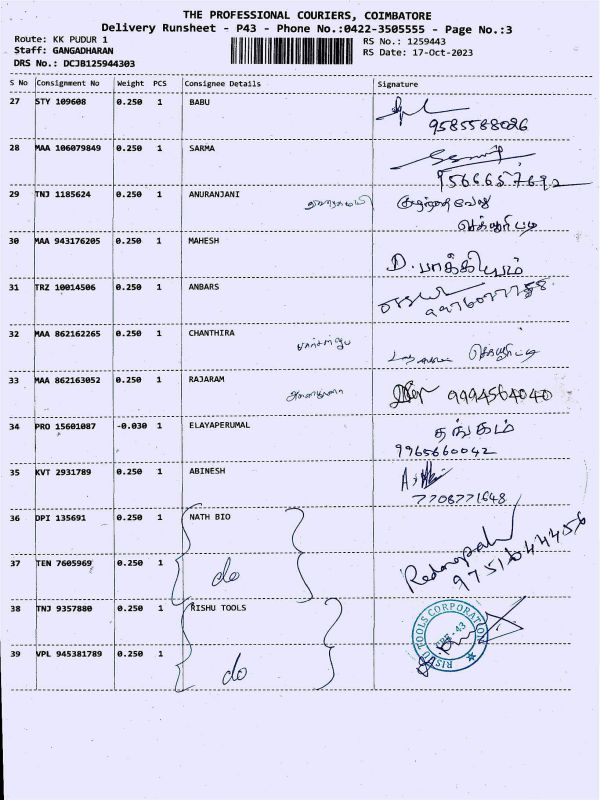 THE PROFESSIONAL COURIERS, COIMBATORE
Delivery Runsheet - P43 - Phone No.:0422-3505555 - Page No.:3
Route: KK PUDUR 1
RS No.: 1259443
Staff: GANGADHARAN
RS Date: 17-Oct-2023
DRS No.: DCJB125944303
S No Consignment No Weight PCS Consignee Details Signature
27 STY 109608 0.250 1 BABU
9585588026
28 MAA 106079849 0.250 1 SARMA
9566657692
29 TNJ 1185624 0.250 1 ANURANJANI
30 MAA 943176205 0.250 1 MAHESH
D. பாக்கியம்
31 TRZ 10014506 0.250 1 ANBARS
32 MAA 862162265 0.250 1 CHANTHIRA
33 MAA 862163052 0.250 1 RAJARAM
9994564040
34 PRO 15601087 -0.030 1 ELAYAPERUMAL
தங்கம்
9965660042
35 KVT 2931789 0.250 1 ABINESH
7708771648
36 DPI 135691 0.250 1 NATH BIO
37 TEN 7605969 0.250 1 do
9751644456
38 TNJ 9357880 0.250 1 RISHU TOOLS
RISHU TOOLS CORPORATION
CBE-43
39 VPL 945381789 0.250 1 do